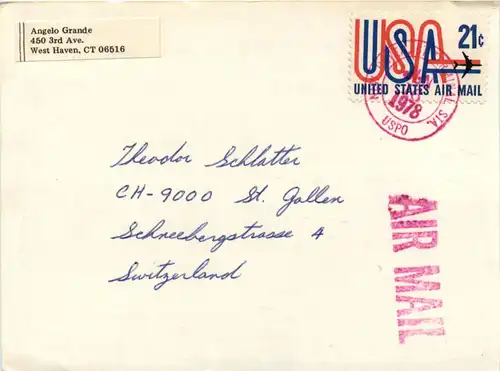 Angelo Grande
450 3rd Ave.
West Haven, CT 06516
USA 21c
UNITED STATES AIR MAIL
1978
STA.
USPO
Theodor Schlatter
CH-9000 St. Gallen
Schneebergstrasse 4
Switzerland
AIR MAIL